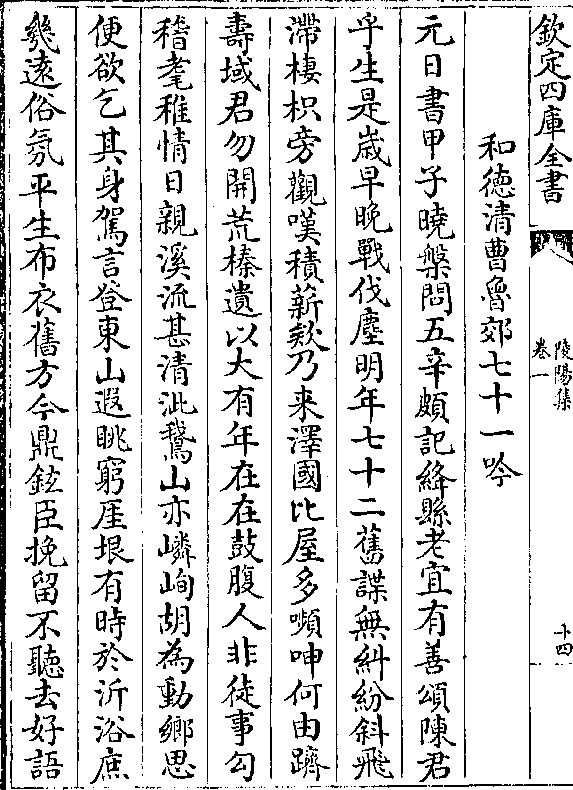 欽定四庫全書
陵陽集
卷一
十四
和德清曹魯郊七十一吟
元日書甲子曉槃悶五辛頗記絳縣老宜有善頌陳君
乎生是歳早晚戰伐塵明年七十二舊諜無糾紛斜飛
滯棲枳旁觀嘆積薪欸乃来澤國比屋多嚬呻何由躋
壽域君勿開荒榛遺以大有年在在鼓腹人非徒事勾
稽耄稚情日親溪流甚清泚鵞山亦嶙峋胡為動鄉思
便欲乞其身駕言登東山遐眺窮厓垠有時於沂浴庶
㡬遠俗氛平生布衣舊方今鼎鉉臣挽留不聽去好語